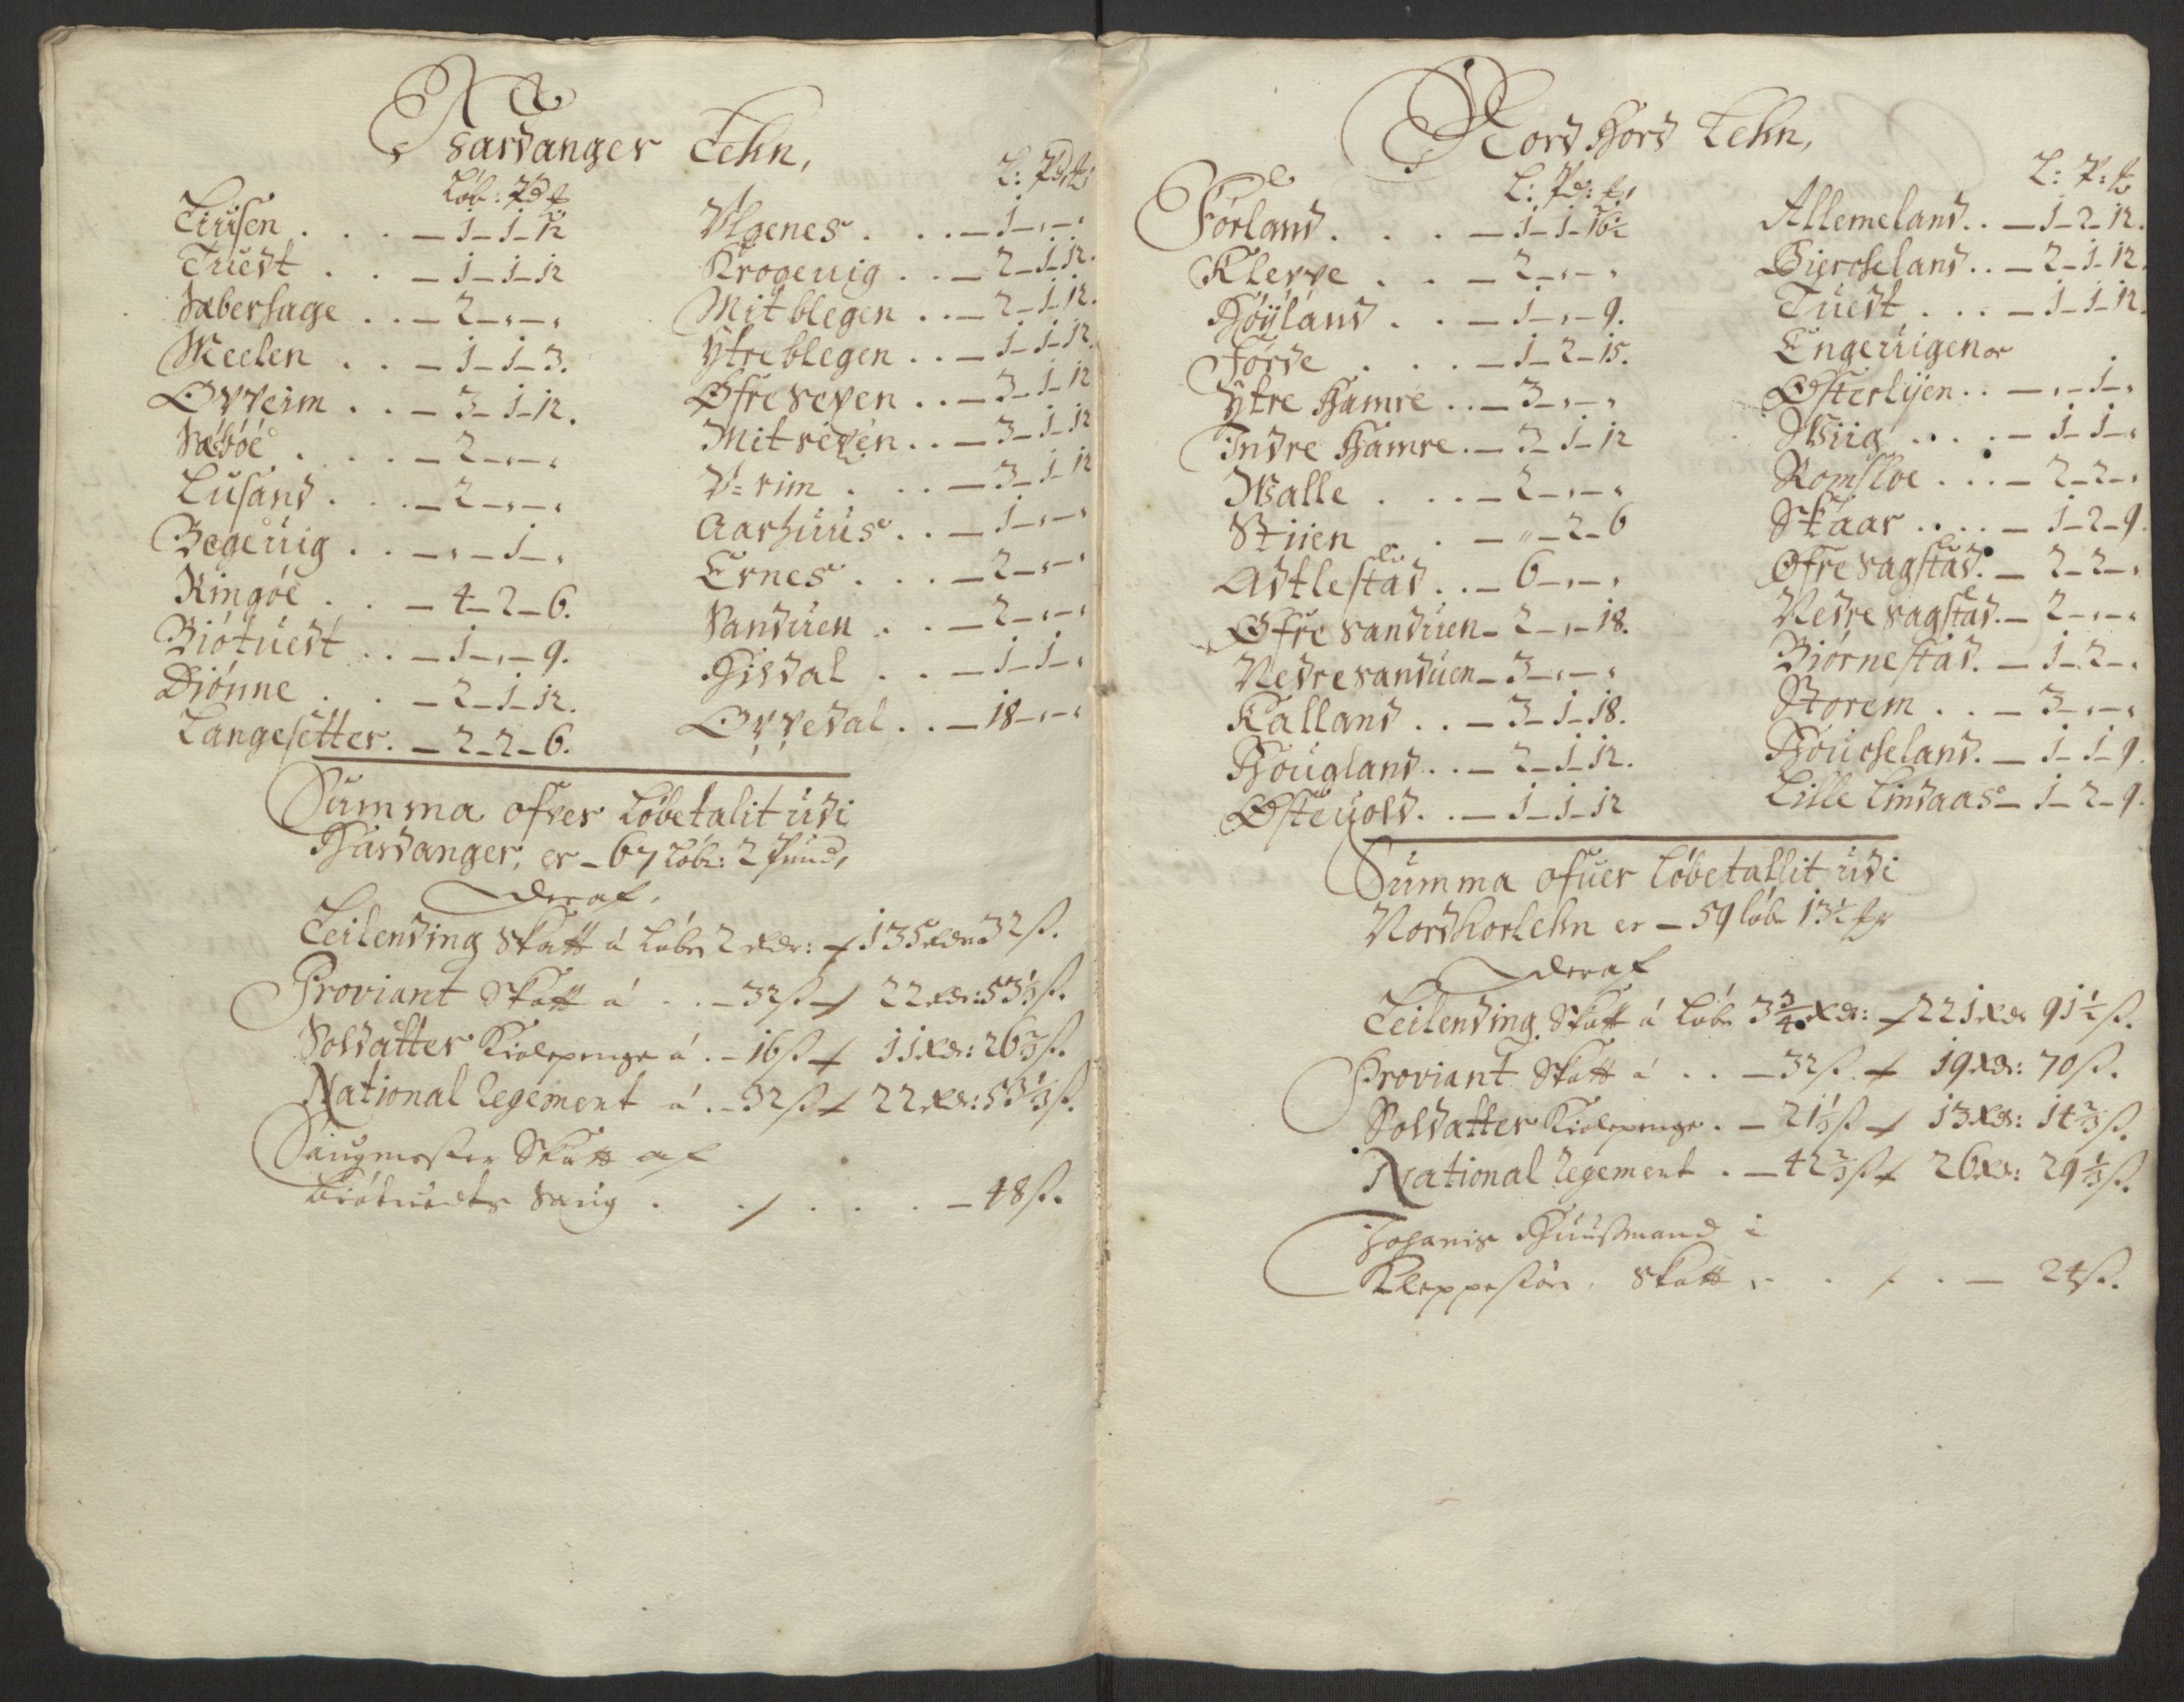 Hardanger Lehn,
Løb: Pd ℔
Tiusen . . . — 1 — 1 — 12
Tuedt . . — 1 — 1 — 12
Næberhage . . — 2 — „ — „
Meelen . . — 1 — 1 — 3.
Oppeim . . — 3 — 1 — 12.
Næsbøe . . . — 2 — „ — „
Lusand . . . — 2 — „ — „
Begeuig . . — „ — 1 — „
Ringøe . . — 4 — 2 — 6.
Biøtuedt . . — 1 — „ — 9.
Diønne . . — 2 — 1 — 12.
Langesetter. — 2 — 2 — 6.
L: Pd: ℔
Ulgenes . . . — 1 — „ — „
Krogeuig . . — 2 — 1 — 12.
Mitblegen . . — 2 — 1 — 12.
Ytreblegen . . — 1 — 1 — 12.
Øfre sexen . . — 3 — 1 — 12
Mitsexen . . — 3 — 1 — 12
. . . — 3 — 1 — 12
Aarhuus . . — 1 — „ — „
Ernes . . . — 2 — „ — „
Sanduen . . — 2 — „ — „
Hisdal . . — 1 — 1 — „
Oppedal . . — 18 — „ — „
Summa ofver Løbetalit udi
Hardanger, er — 67 Løb: 2 Pund,
deraf,
Leilending Skatt á Løb 2 Rdr: ./. 135 Rdr 32 ß.
Proviant Skatt á . . — 32 ß ./. 22 Rdr: 53⅓ ß.
Soldatter Kiolepenge á . — 16 ß ./. 11 Rdr: 26⅔ ß.
National Regement á . — 32 ß ./. 22 Rdr: 53⅓ ß.
Saugmester Skatt af
Biøtuedts Saug . ./. . . . — 48 ß.
Nord Hord Lehn,
L: Pd: ℔
Førland . . . — 1 — 1 — 16½
Kleppe . . — 2 — „ — „
Høÿland . . — 1 — „ — 9.
Førde . . . — 1 — 2 — 15.
Ytre Hamre . . — 3 — „ — „
Indre Hamre. — 3 — 1 — 12
Walle . . . — 2 — „ — „
Stiien . . — „ — 2 — 6
Adtlestad . . — 6 — „ — „
Øfre sanduen — 2 — „ — 18.
Nedre sanduen — 3 — „ — „
Kalland . . — 3 — 1 — 18.
Hougland . . — 2 — 1 — 12.
Østeuold. . — 1 — 1 — 12
L: P: ℔
Allemeland . . — 1 — 2 — 12.
Biercheland . . — 2 — 1 — 12.
Tuedt . . . — 1 — 1 — 12.
Engeuigen oc
Østerlijen . . — „ — 1 — „
Wiig . . . . — 1 — 1 — „
Romsloe . . . — 2 — 2 — „
Skaar . . . . — 1 — 2 — 9.
Øfre sagstad. — 2 — 2 — „
Nedre sagstad. — 2 — „ — „
Biørnestad. — 1 — 2 — „
Storem . . — 3 — „ — „
Houcheland. — 1 — 1 — 9.
Lille Lindaas — 1 — 2 — 9.
Summa ofuer Løbetallit udi
Nordhorlehn er — 59 Løb 13½ ℔
deraf
Leilending Skatt á Løb 3¾ Rdr: ./. 221 Rdr 91½ ß.
Proviant Skatt á . . — 32 ß. ./. 19 Rdr: 70 ß.
Soldatter Kiolepenge . — 21⅓ ß ./. 13 Rdr: 14⅔ ß.
National Regement . — 42⅔ ß ./. 26 Rdr: 29⅓ ß.
Johanis Huusmand i
Kleppestøn, Skatt . . ./. . — 24 ß.